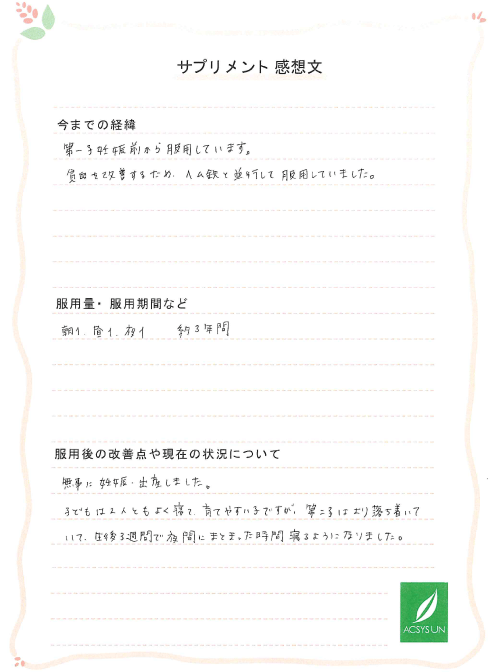 サプリメント 感想文
今までの経緯
第一子妊娠前から服用しています。
貧血を改善するため、ヘム鉄と並行して服用していました。
服用量・服用期間など
朝1、昼1、夜1　約3年間
服用後の改善点や現在の状況について
無事に妊娠・出産しました。
子どもは2人ともよく寝て、育てやすい子ですが、第二子はより落ち着いて
いて、生後3週間で夜間にまとまった時間寝るようになりました。
ACSYSUN